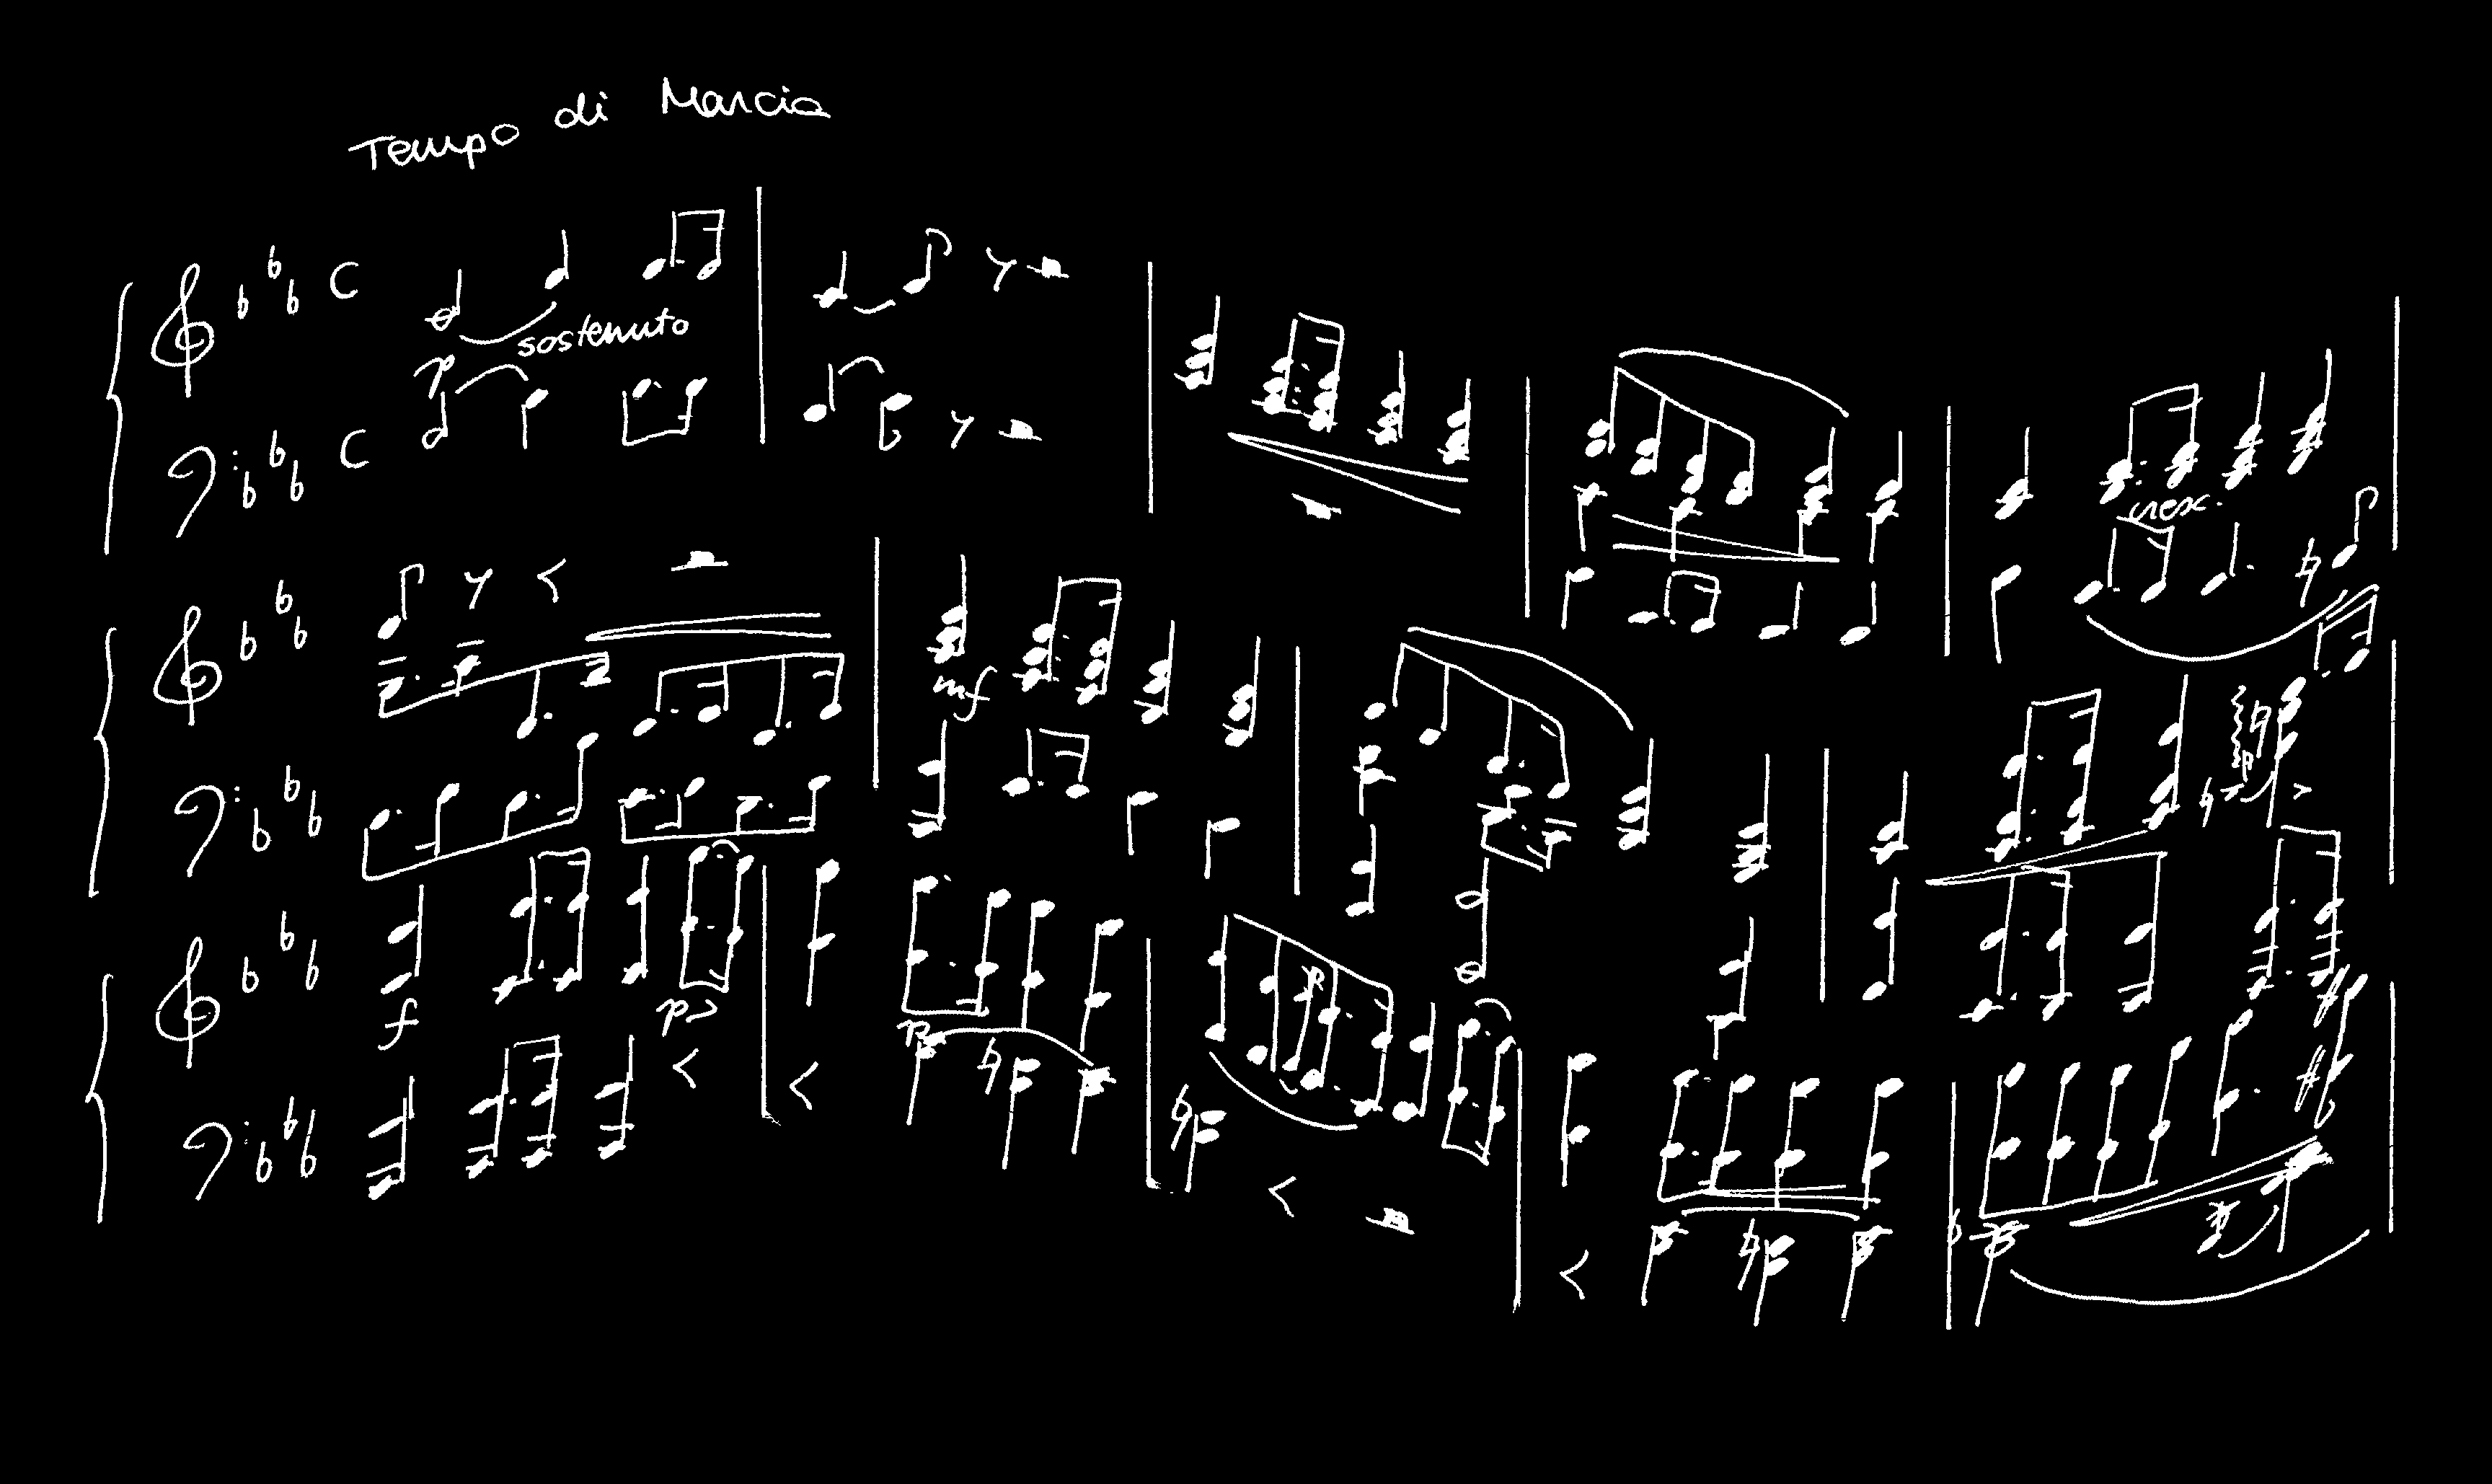 Tempo di Marcia
C
sostenuto
p
C
cresc.
mf
f
p
p